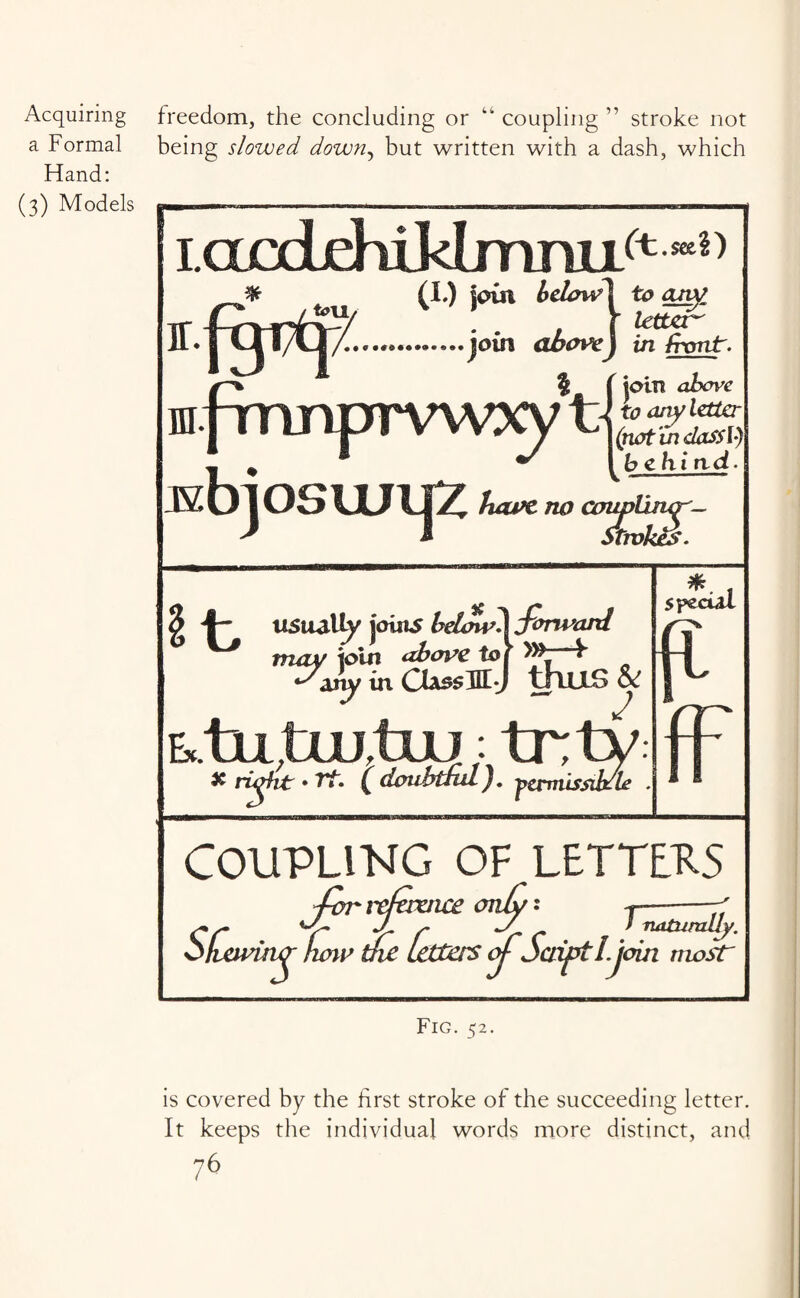 Acquiring
a Formal
Hand:
(3) Models
freedom, the concluding or “ coupling ” stroke not
being slowed down, but written with a dash, which
I. acdehiklmnu (t. see §)
(I.) join below } to any letter in front.
II. * fgr/q/ to u/ ............... join above
III. fmnprvwxy t § { join above to any letter (not in class I.) behind.
IV. bjosuwyz have no coupling-
strokes.
§ t usually joins below.* } forward
may join above to
any in Class III. } thus &
Ex. tu, tuu, tuu : tr, ty :
* right · rt. ( doubtful ). permissible .
* special
ft
ff
COUPLING OF LETTERS
for reference only :
naturally.
Shewing how the letters of Script I. join most
Fig. 52.
is covered by the first stroke of the succeeding letter.
It keeps the individual words more distinct, and
76